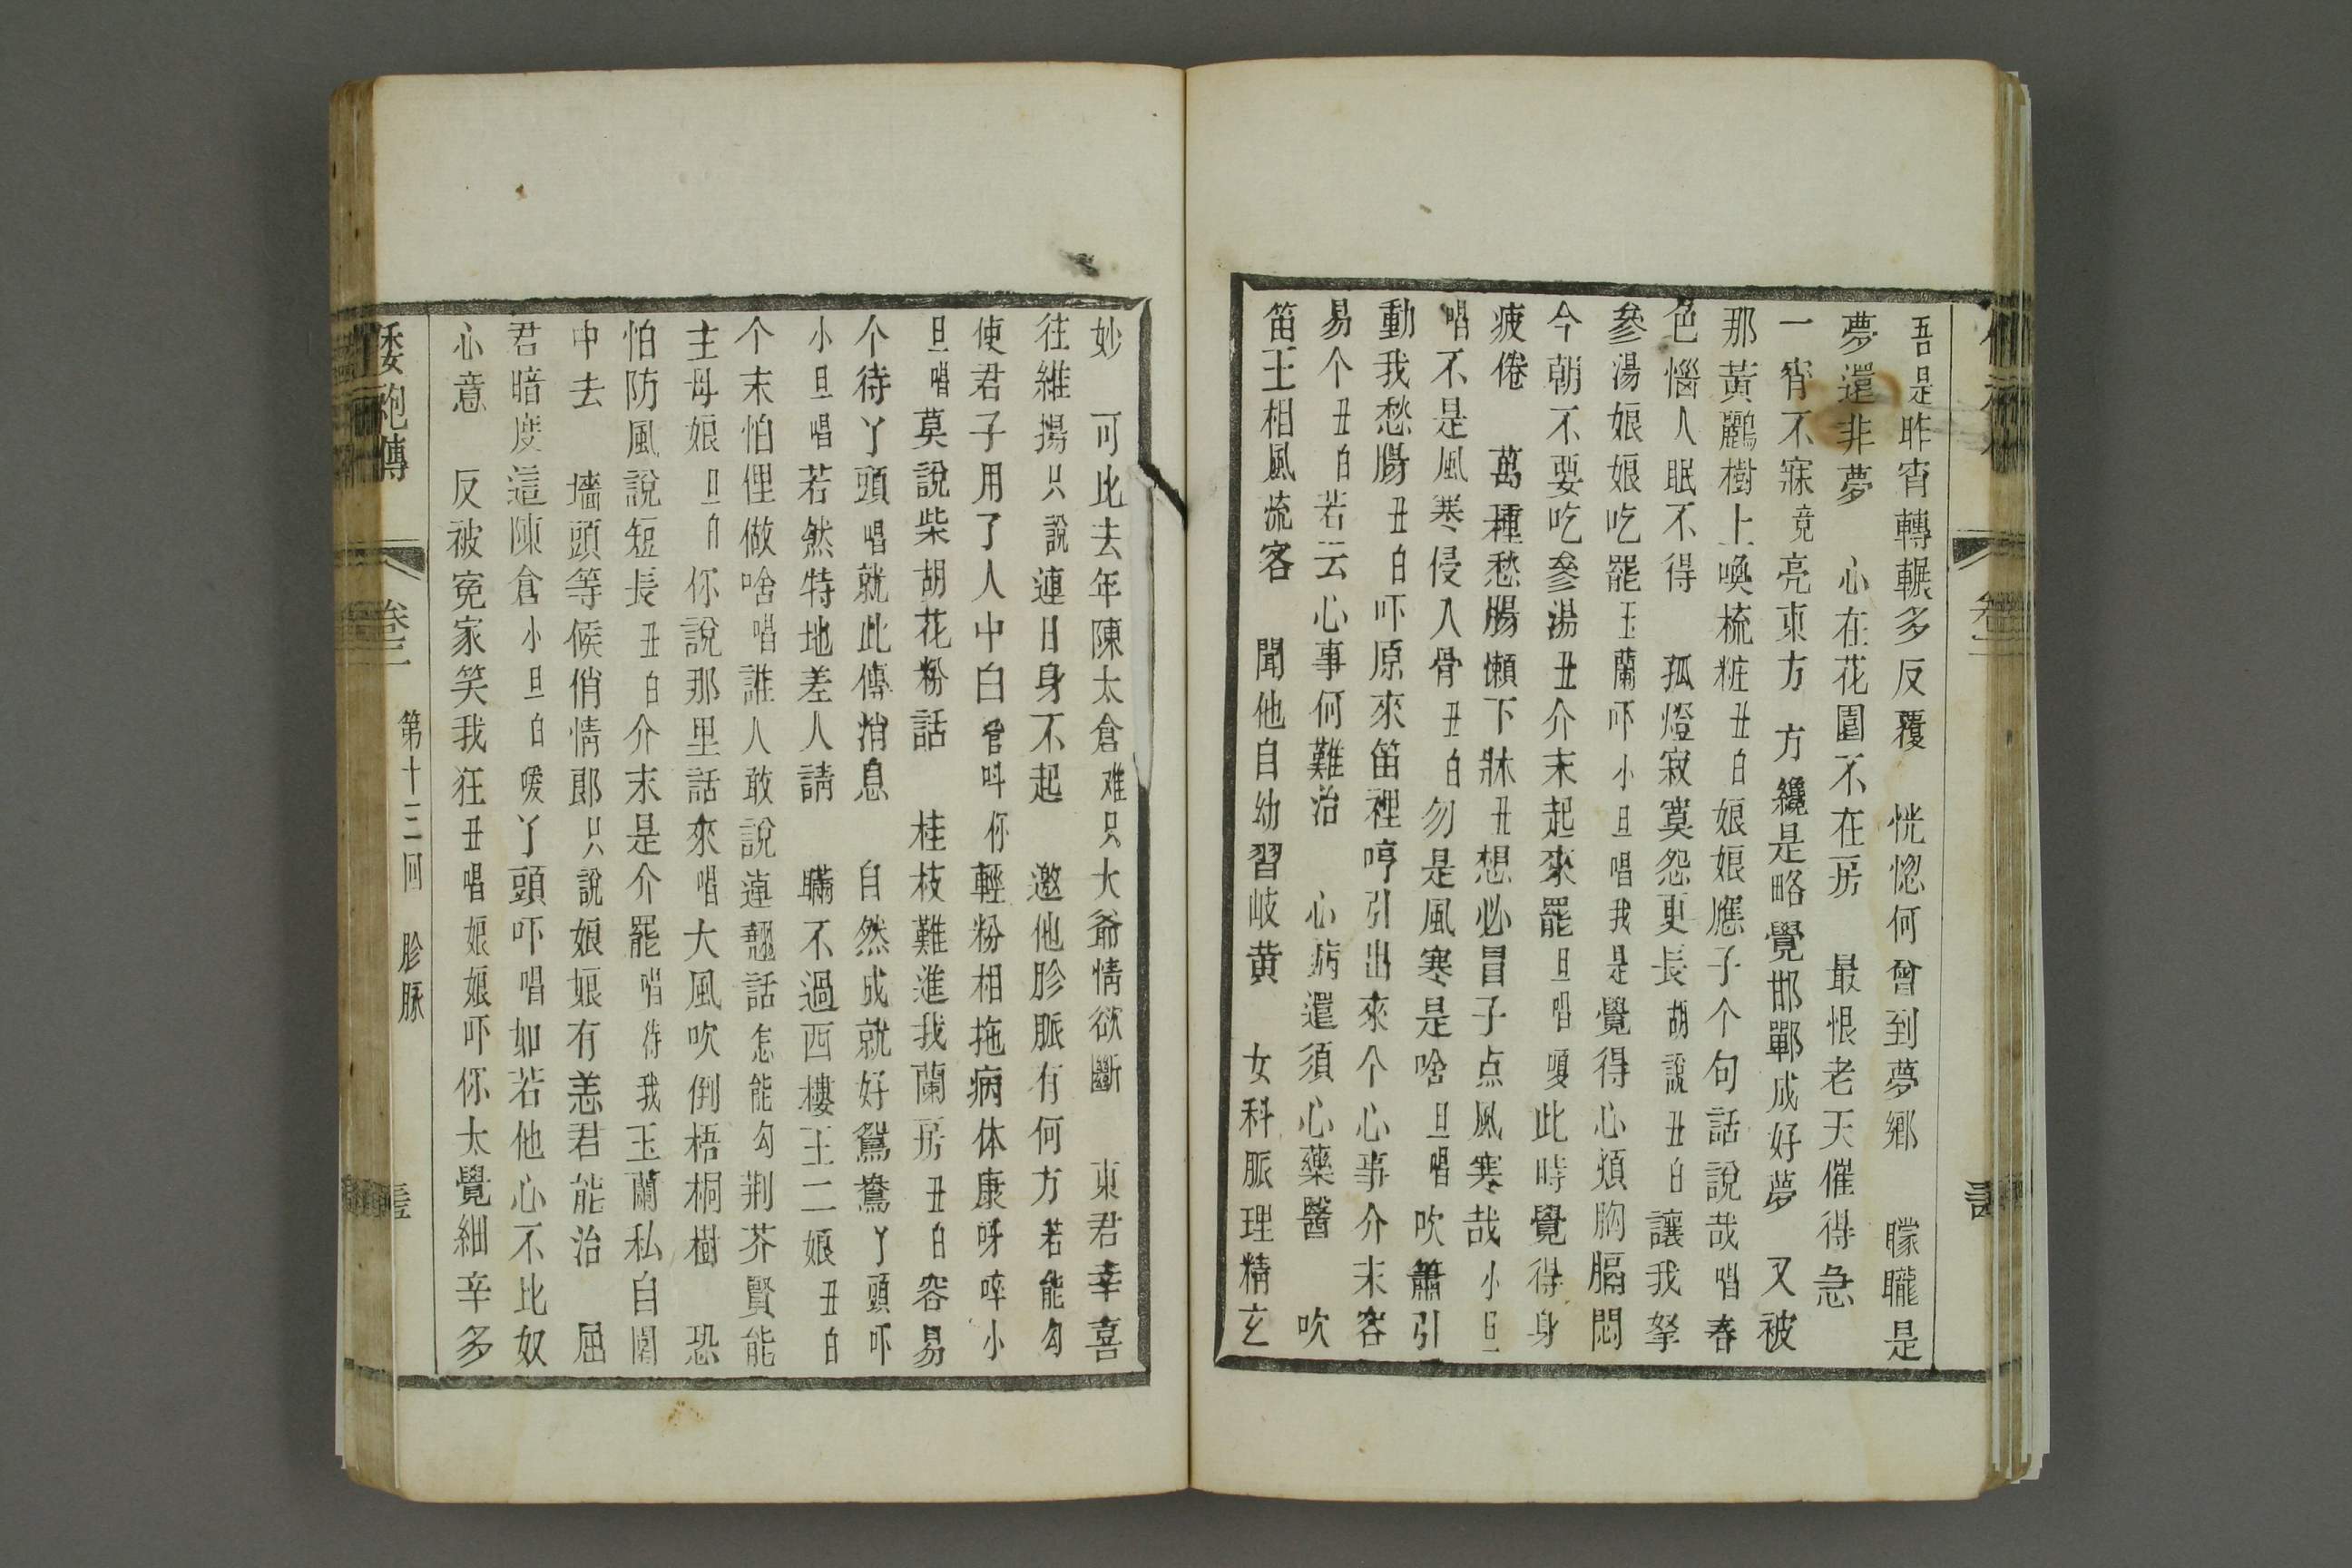 吾是昨宵轉輾多反覆　恍惚何曾到夢鄉　矇矓是
夢還非夢　心在花園不在房　最恨老天催得急
一宵不寐竟亮東方　方纔是略覺邯鄲成好夢　又被
那黃鸝樹上喚梳粧丑白娘娘應子个句話說哉唱春
色惱人眠不得　孤燈寂寞怨更長胡說丑白讓我拏
參湯娘娘吃罷玉蘭吓小旦唱我是覺得心煩胸膈悶
今朝不要吃參湯丑介末起來罷旦唱嗄此時覺得身
疲倦　萬種愁腸懶下牀丑想必冒子点風寒哉小旦
唱不是風寒侵入骨丑白勿是風寒是啥旦唱吹簫引
動我愁腸丑白吓原來笛裡哼引出來个心事介末容
易个丑白若云心事何難治　心病還須心藥醫　吹
笛王相風流客　聞他自幼習岐黃　女科脈理精玄
妙　可比去年陳太倉难只大爺情欲斷　東君幸喜
往維揚只說連日身不起　邀他胗脈有何方若能勾
使君子用了人中白管呌你輕粉相拖病体康呀啐小
旦唱莫說柴胡花粉話　桂枝難進我蘭房丑白容易
个待丫頭唱就此傳消息　自然成就好鴛鴦丫頭吓
小旦唱若然特地差人請　瞞不過西樓王二娘丑白
个末怕俚做啥唱誰人敢說連翹話怎能勾荆芥賢能
主母娘旦白你說那里話來唱大風吹倒梧桐樹　恐
怕防風說短長丑白介末是介罷唱待我玉蘭私自園
中去　墻頭等候俏情郎只說娘娘有恙君能治　屈
君暗度這陳倉小旦白噯丫頭吓唱如若他心不比奴
心意　反被寃家笑我狂丑唱娘娘吓你太覺細辛多
倭袍傳　卷三　第十三回　胗脉